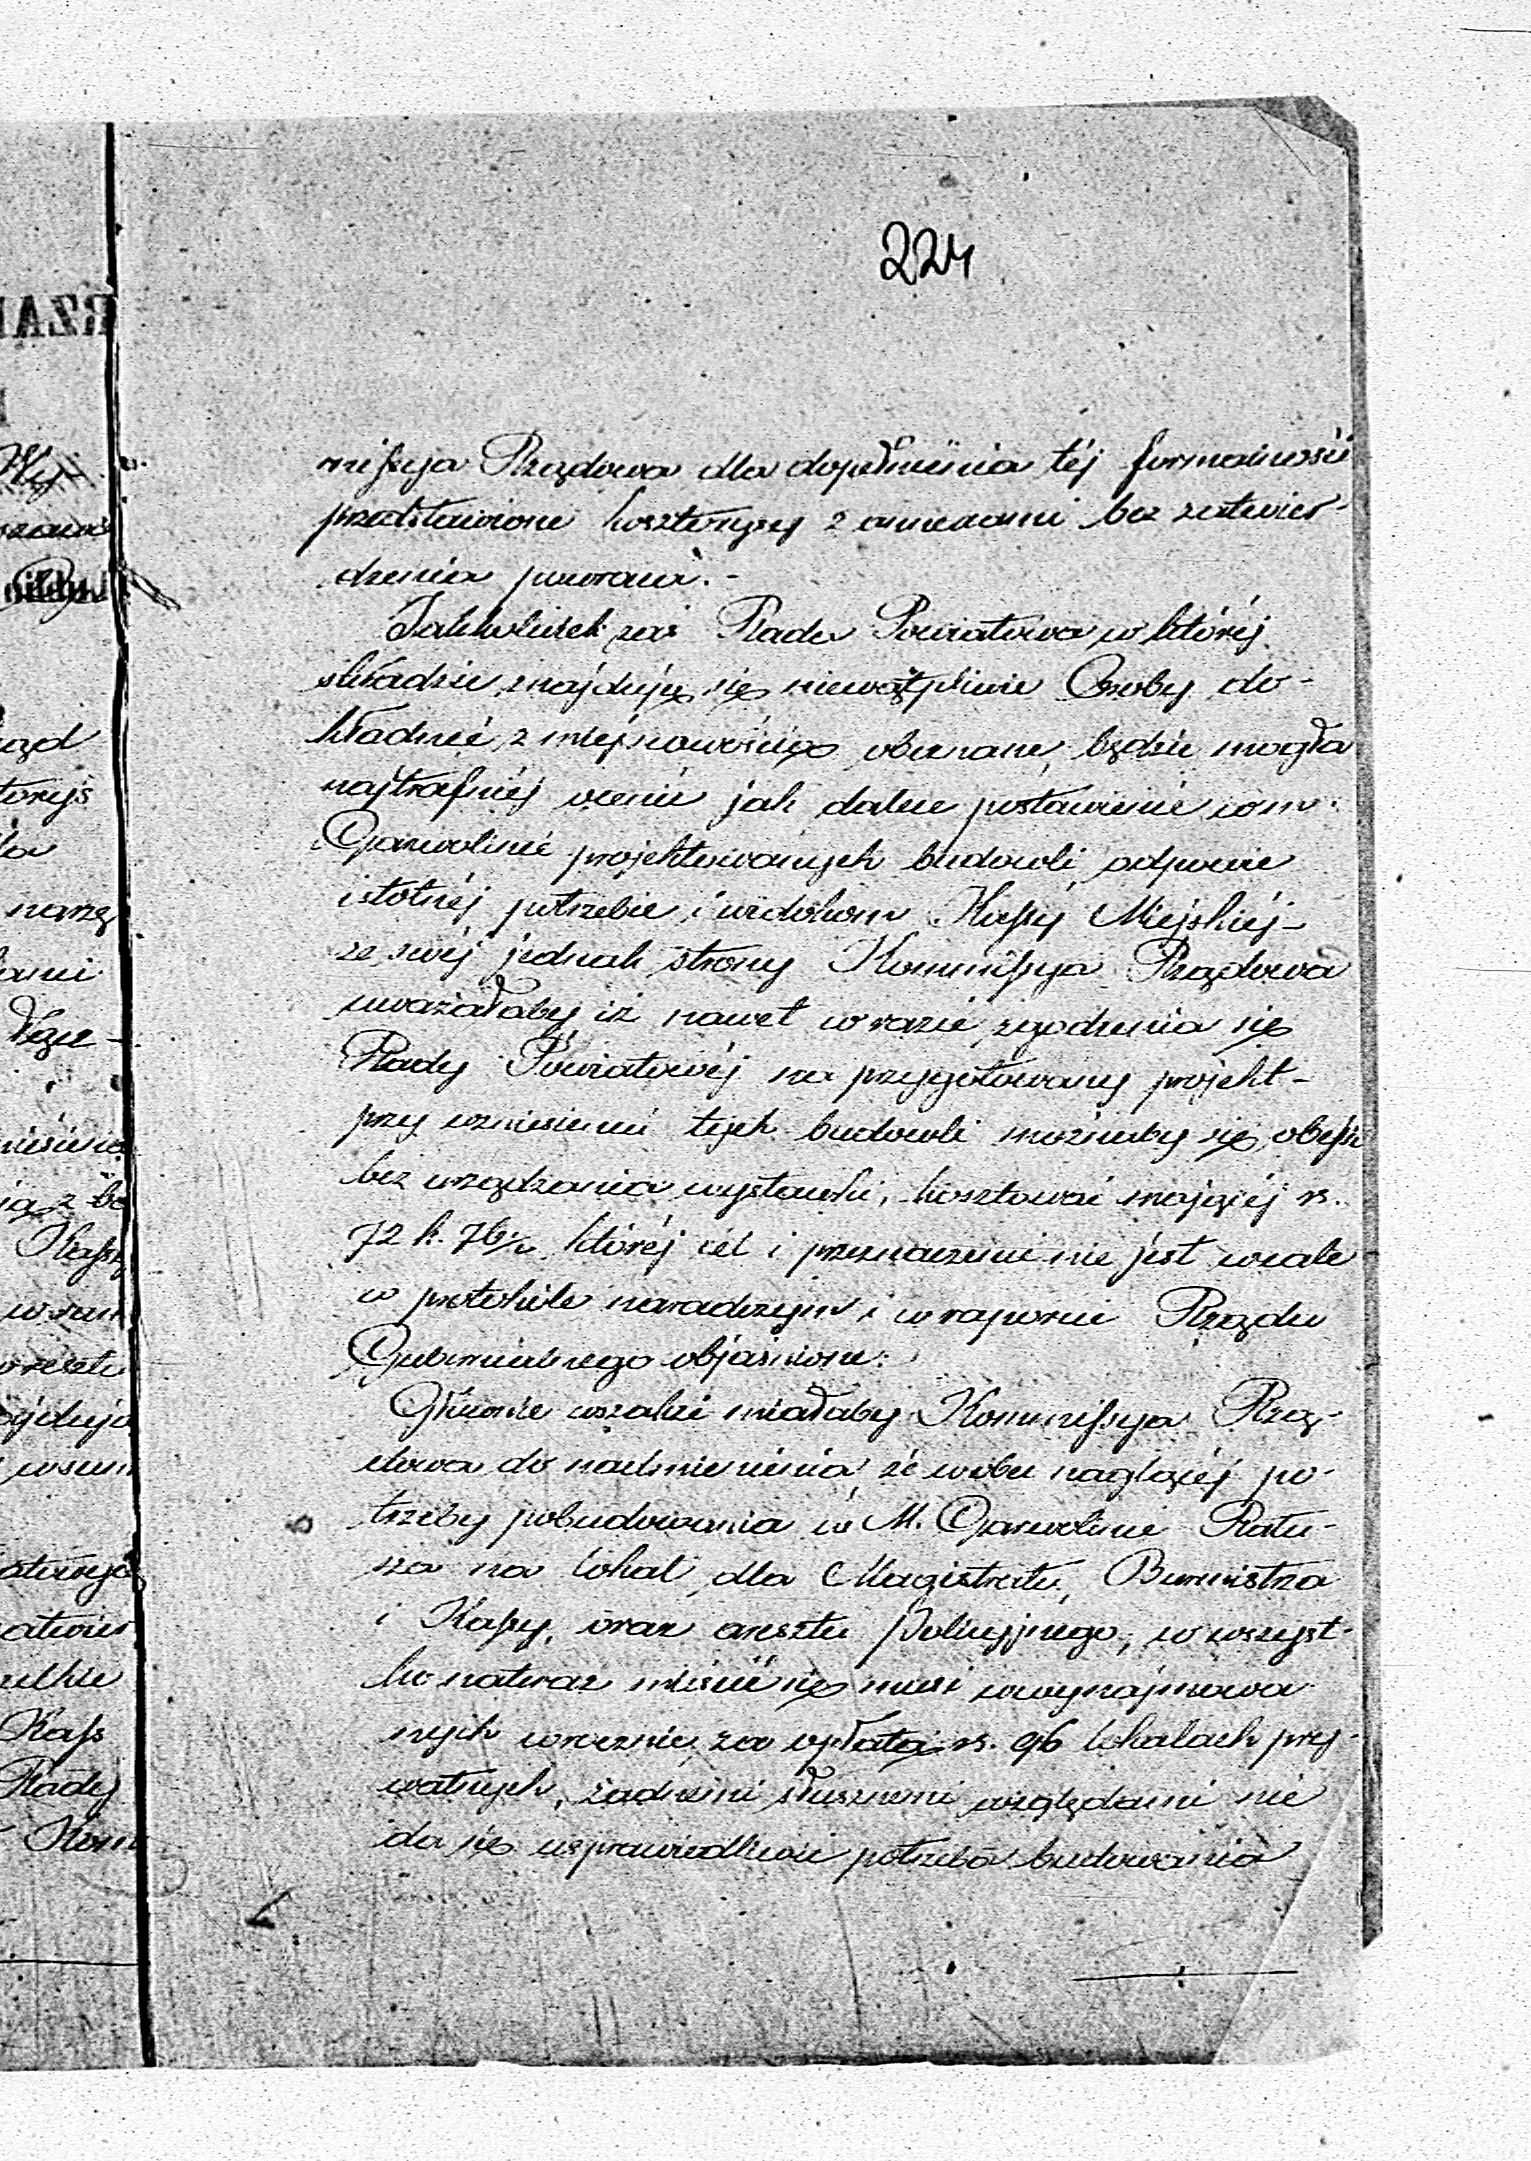 224
missya Rządowa dla dopełnienia téj formalności
przedstawione kosztorysy z anexami bez zatwier-
dzenia powraca.-
Jakkolwiek zaś Rada Powiatowa w któréj
składzie znajdują się niewątpliwie Osoby do-
kładnié z miéjscowością obeznane, będzie mogła
najtrafniéj ocenić jak dalece postawienie w m.
Garwolinie projektowanych budowli odpowie
istotnéj potrzebie i widokom Kassy Miejskiéj-
ze swéj jednak strony Kommissya Rządowa
uważałaby iż nawet w razie zgodzenia się
Rady Powiatowéj na przygotowany projekt-
przy wzniesieniu tych budowli możnaby się obejść
bez urządzania wystawki, kosztować mającéj rs.
72 k. 76½ któréj cel i przeznaczenie nie jest wcale
w protokule naradczym i w raporcie Rządu
Gubernialnego objaśnione.
Głównie wszakże miałaby Kommissya Rzą-
dowa do nadmienienia, że wobec naglącéj po-
trzeby pobudowania w M. Garwolinie Ratu-
sza na lokal dla Magistratu, Burmistrza
i Kassy, oraz aresztu Policyjnego, co wszyst-
ko nateraz mieścić się musi w wynajmowa-
nych rocznie za opłatą rs. 96 lokalach pry-
watnych, żadnemi słusznemi względami nie
da się usprawiedliwić potrzeba budowania